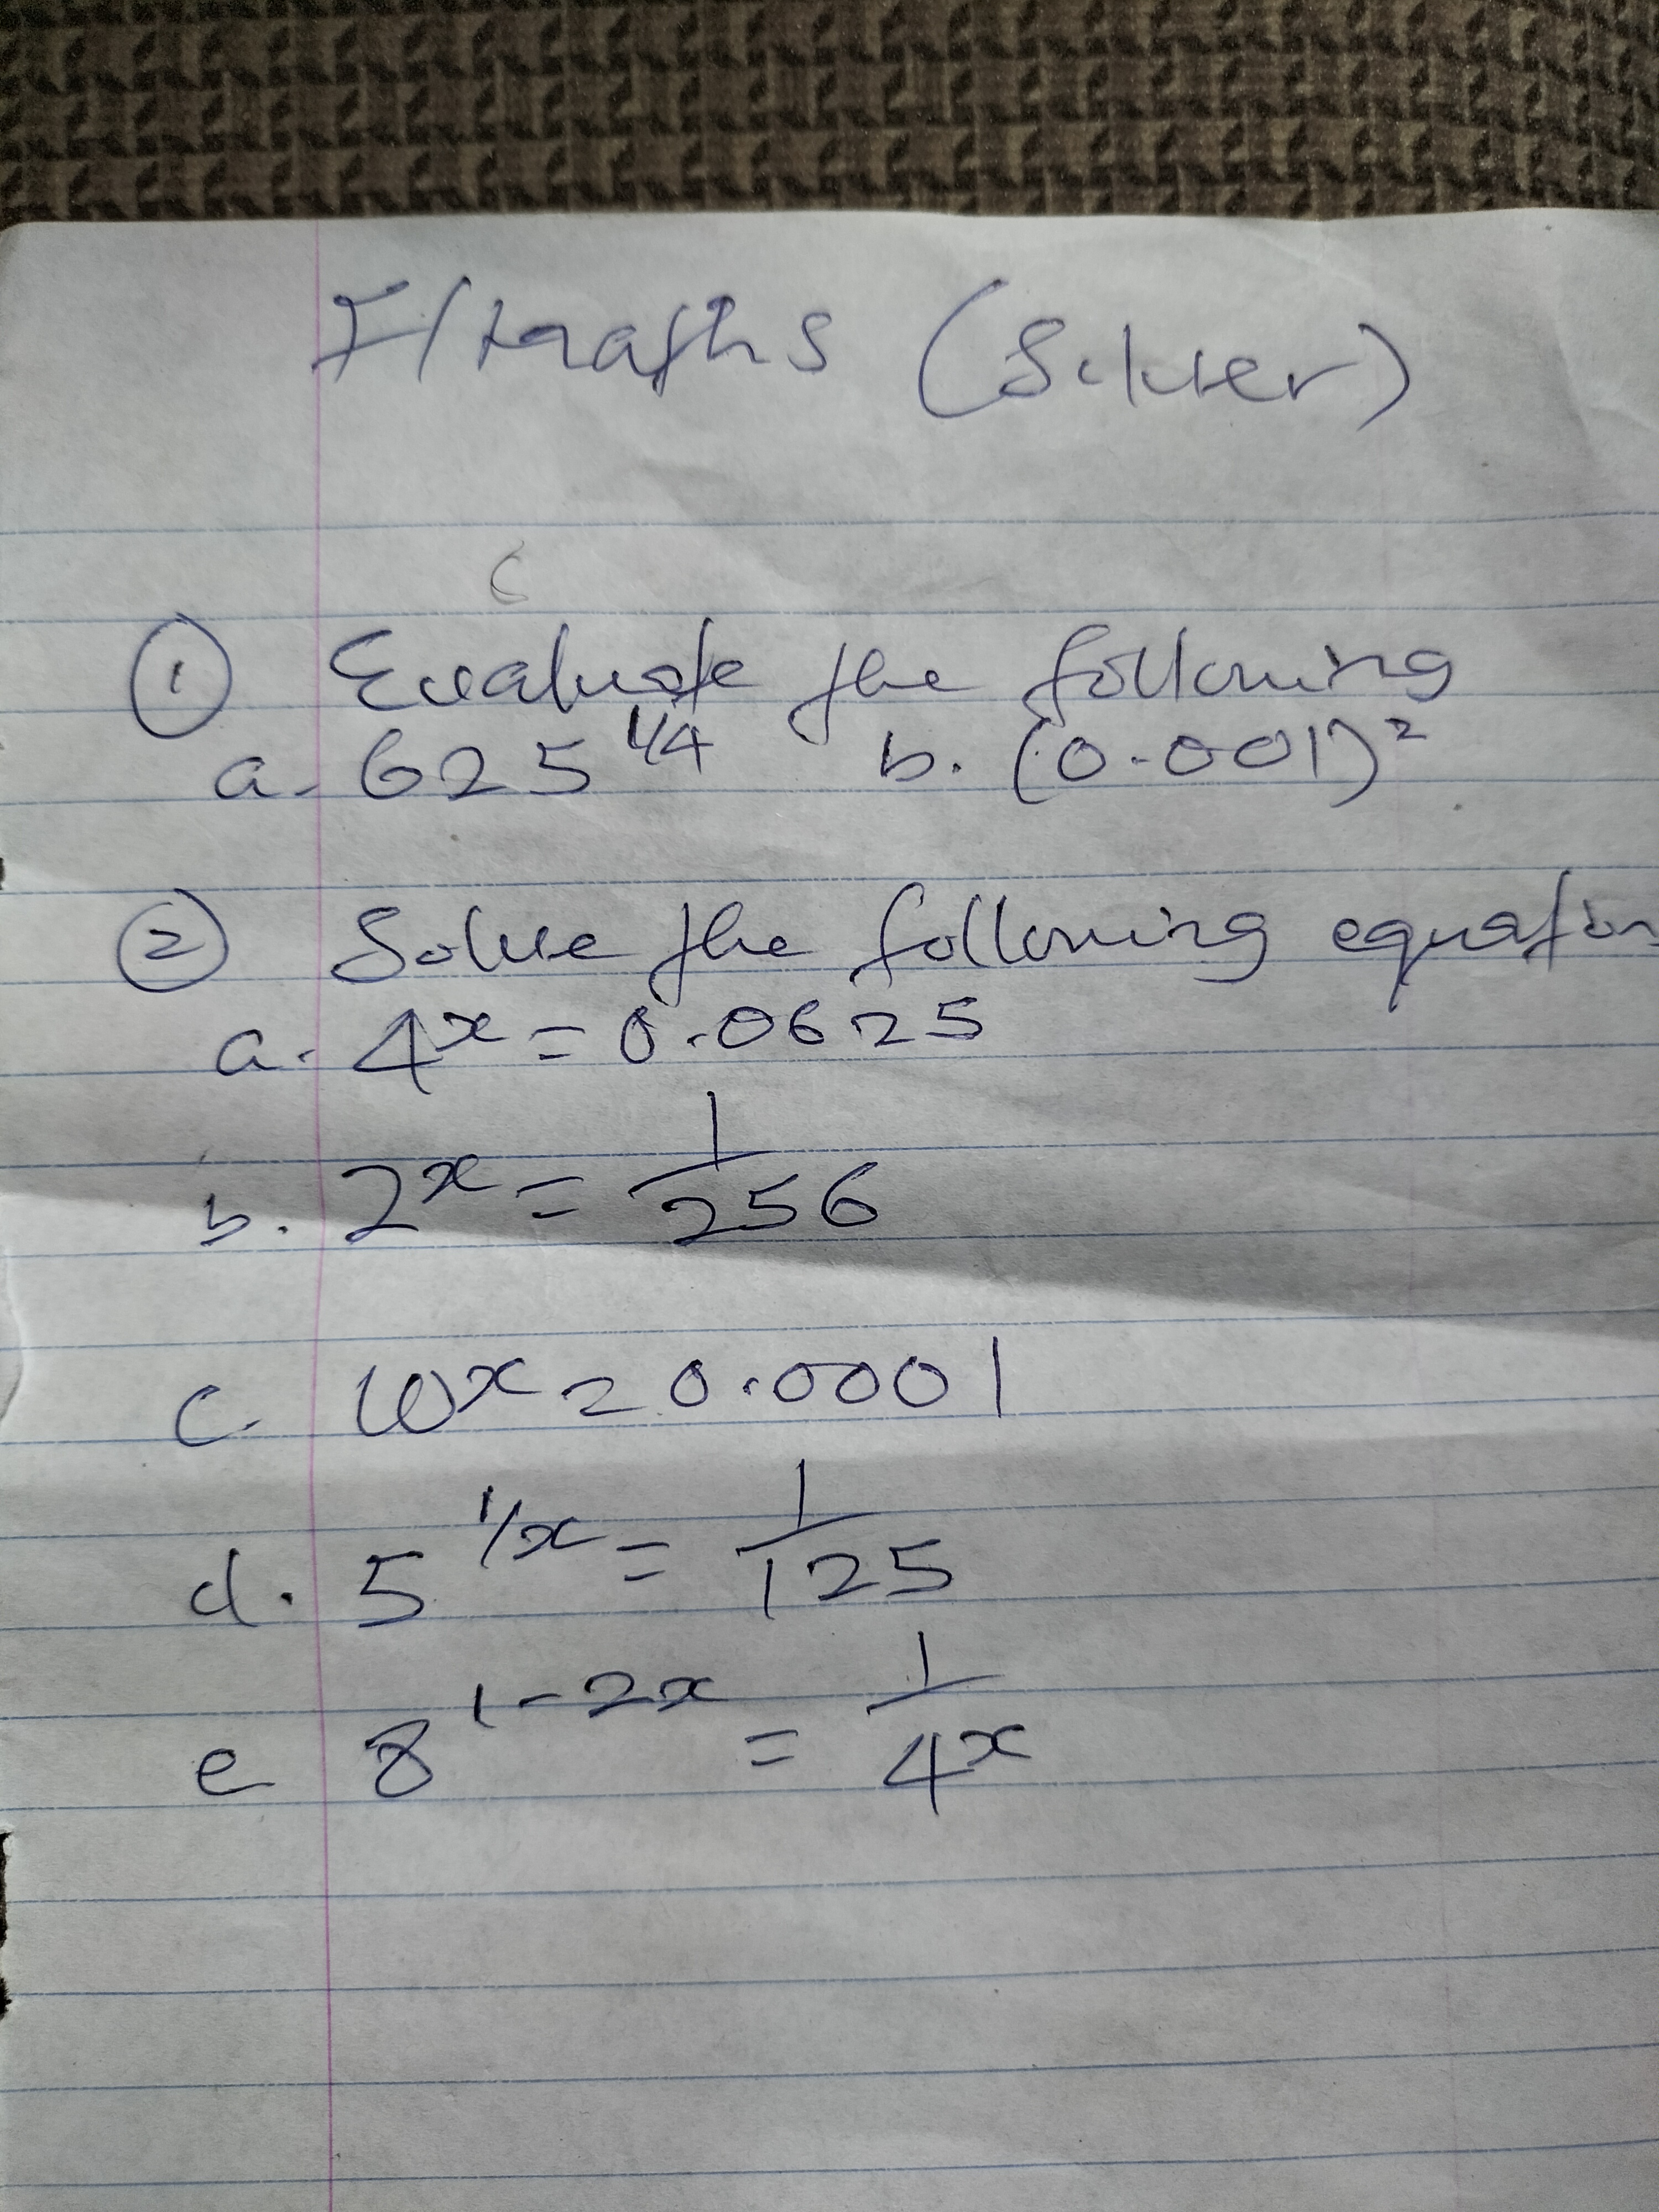 F/Maths (Silver)
① Evaluate the following
a. 625^1/4 b. (0.001)²
② Solve the following equation
a. 4^x = 0.0625
b. 2^x = 1/256
c. 10^x = 0.0001
d. 5^1/x = 1/125
e 8^1-2x = 1/4^x